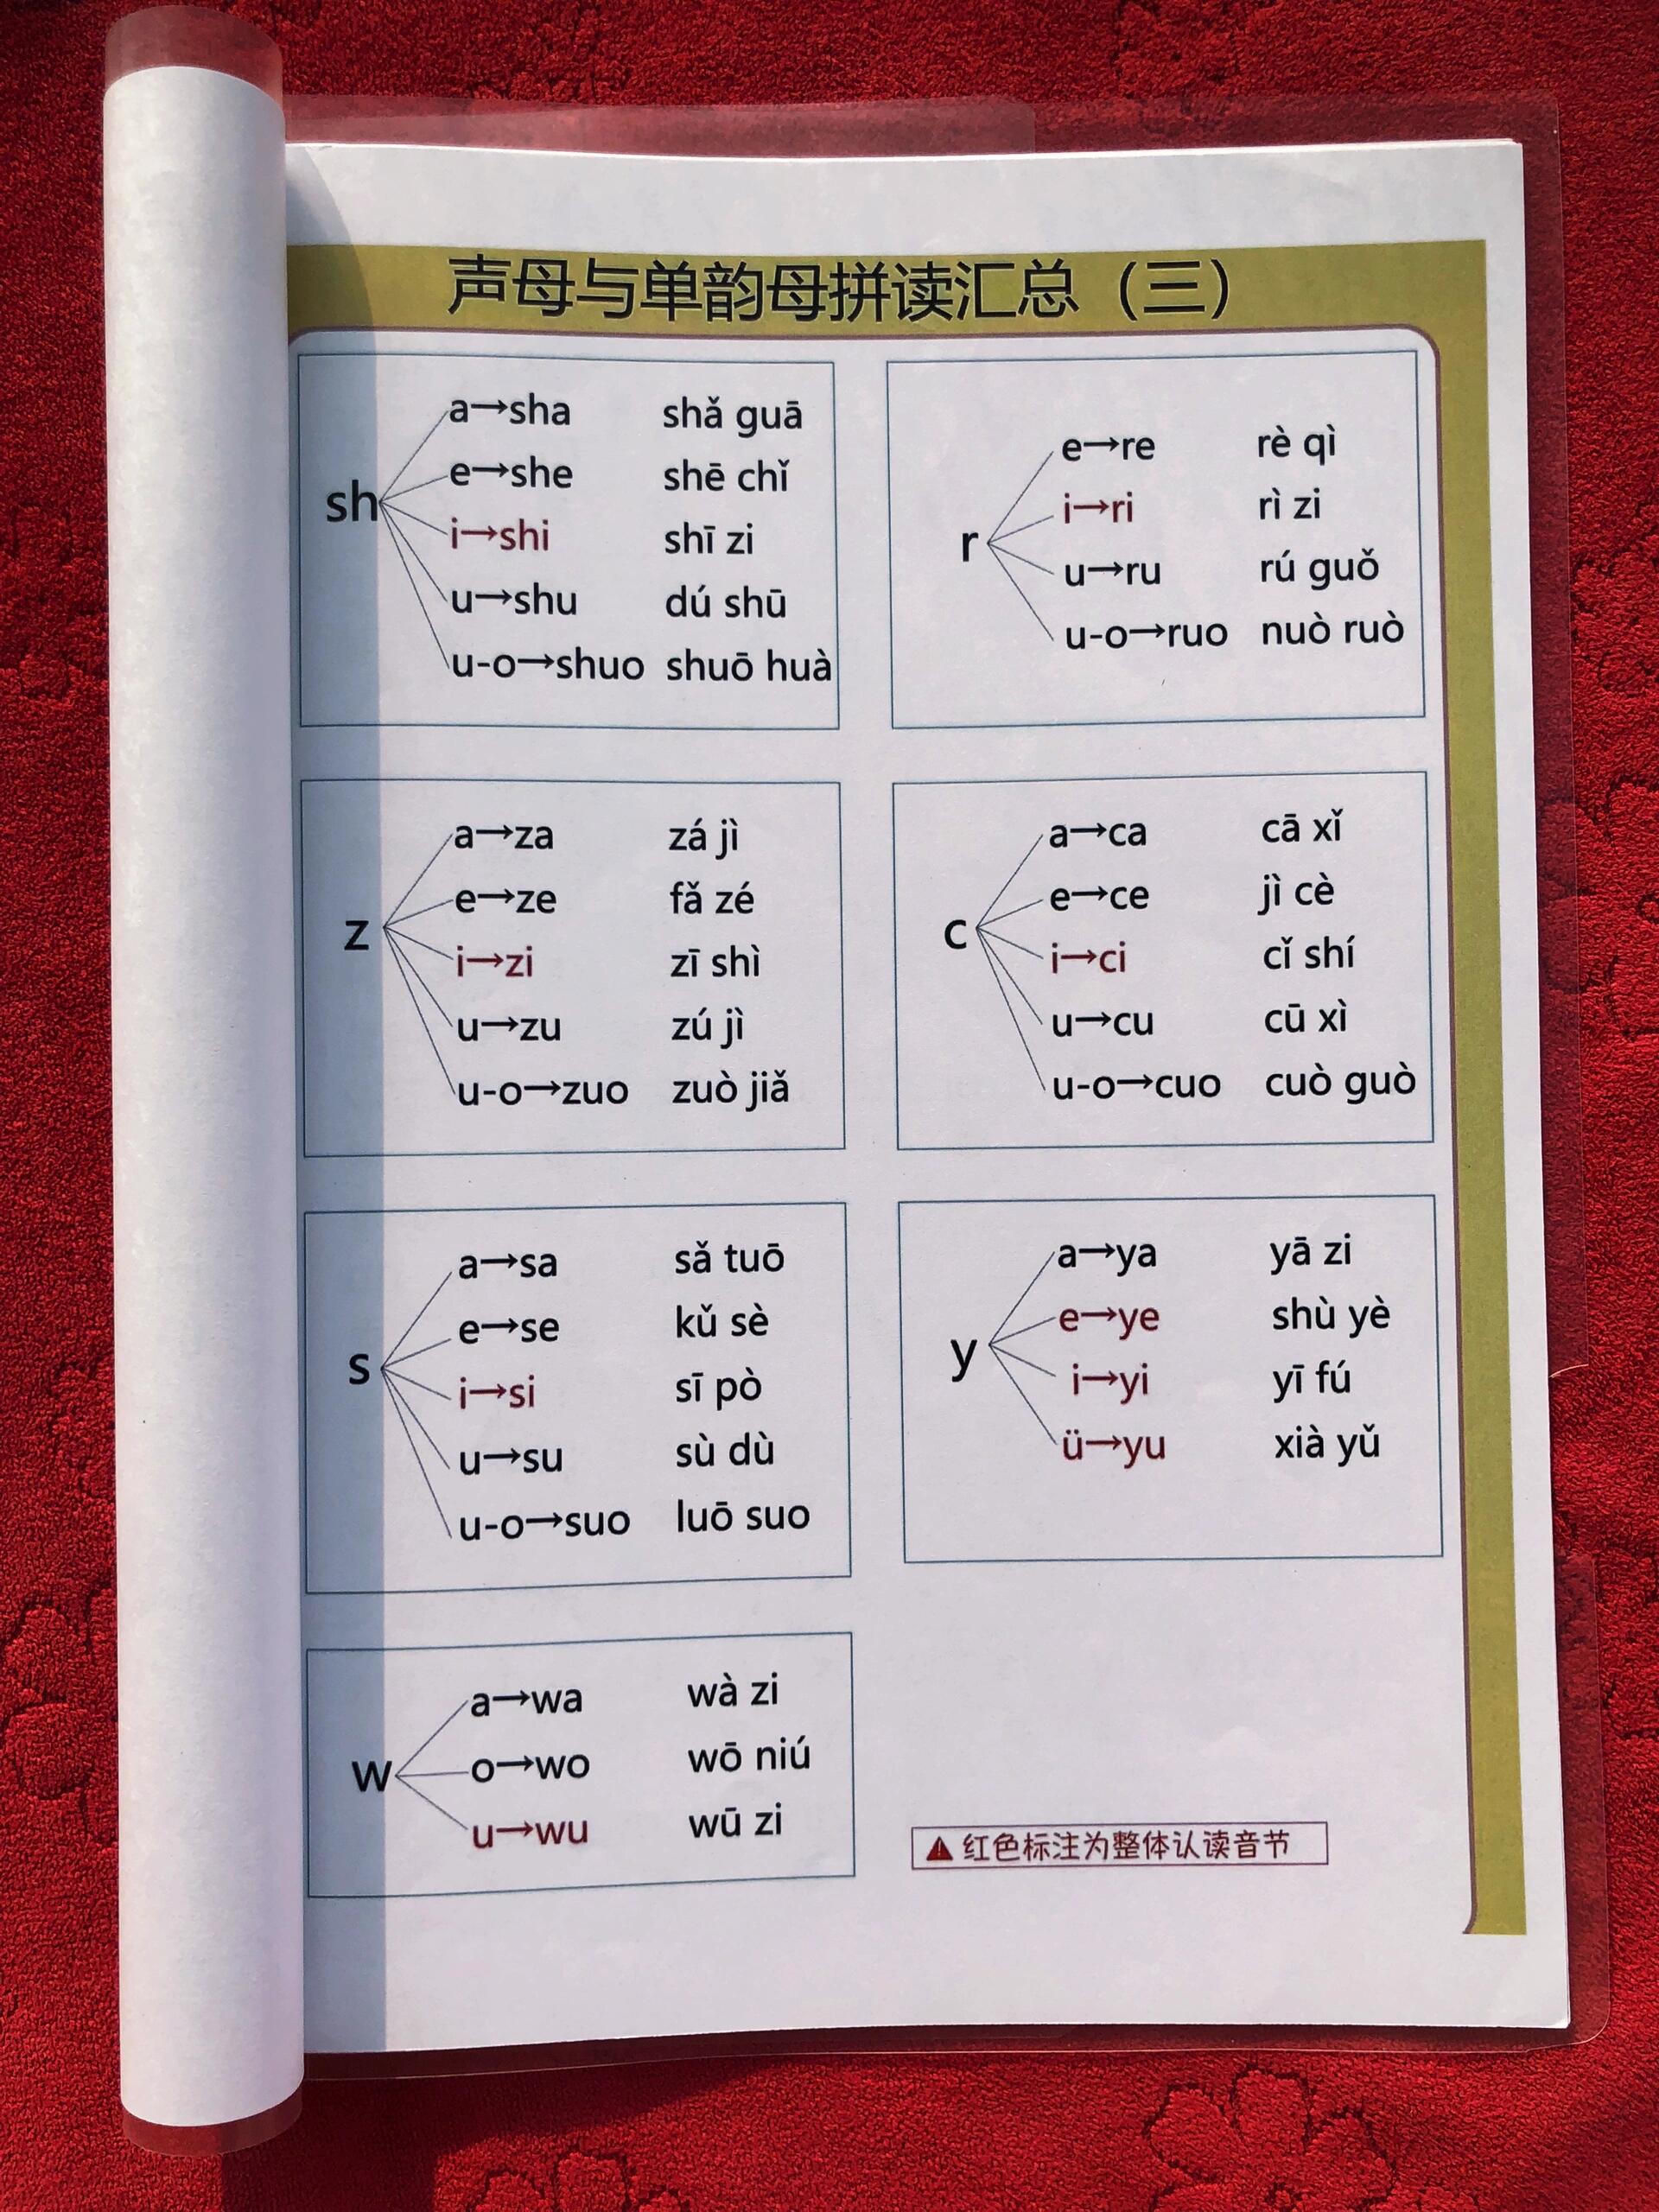 声母与单韵母拼读汇总（三）
sh
a→sha shǎ guā
e→she shē chǐ
i→shi shī zi
u→shu dú shū
u-o→shuo shuō huà
r
e→re rè qì
i→ri rì zi
u→ru rú guǒ
u-o→ruo nuò ruò
z
a→za zá jì
e→ze fǎ zé
i→zi zī shì
u→zu zú jì
u-o→zuo zuò jiǎ
c
a→ca cā xǐ
e→ce jì cè
i→ci cǐ shí
u→cu cū xì
u-o→cuo cuò guò
s
a→sa sǎ tuō
e→se kǔ sè
i→si sī pò
u→su sù dù
u-o→suo luō suo
y
a→ya yā zi
e→ye shù yè
i→yi yī fú
ü→yu xià yǔ
w
a→wa wà zi
o→wo wō niú
u→wu wū zi
红色标注为整体认读音节